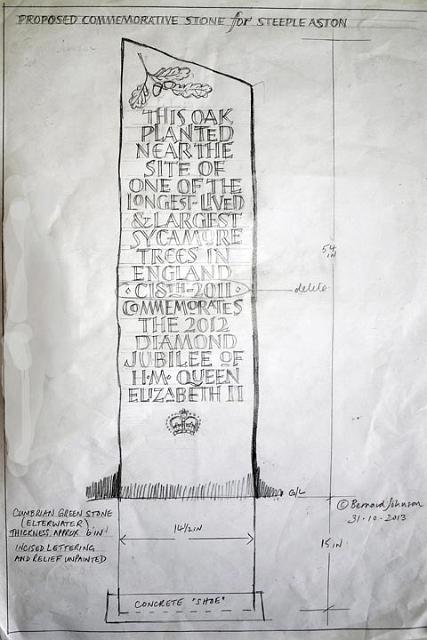 PROPOSED COMMEMORATIVE STONE for STEEPLE ASTON
THIS OAK
PLANTED
NEAR THE
SITE OF
ONE OF THE
LONGEST-LIVED
& LARGEST
SYCAMORE
TREES IN
ENGLAND
· C18TH-2011 ·
delete
COMMEMORATES
THE 2012
DIAMOND
JUBILEE OF
H·M· QUEEN
ELIZABETH II
54
in
G/L
CUMBRIAN GREEN STONE
(ELTERWATER)
THICKNESS APPROX 6 in
INCISED LETTERING
AND RELIEF UNPAINTED
14½ IN
© Bernard Johnson
31·10·2013
15 in
CONCRETE "SHOE"